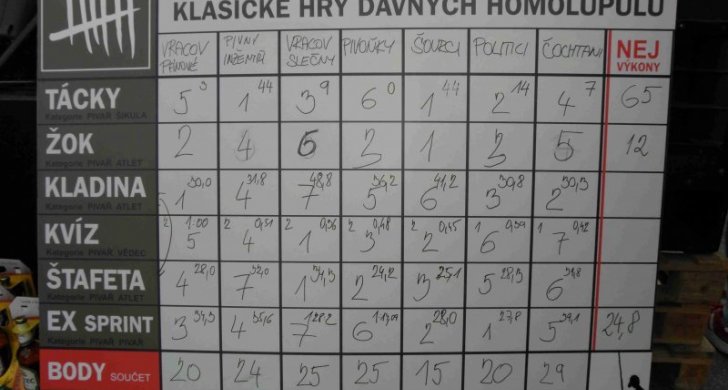 KLASICKÉ HRY DÁVNÝCH HOMOLUPULŮ
VRACOV PÁNOVÉ PIVNÍ INŽENÝŘI VRACOV SLEČNY PIVOŇKY ŠOUZCI POLITICI NEJ VÝKONY
TÁCKY 5 3 1 44 3 9 6 0 1 44 2 14 4 7 65
Kategorie PIVAŘ ŠIKULA
ŽOK 2 4 6 3 1 3 5 12
Kategorie PIVAŘ ATLET
KLADINA 1 30,0 4 31,8 7 48,8 5 36,2 6 41,2 3 30,8 2 30,5
Kategorie PIVAŘ ATLET
KVÍZ 2 5 1:00 2 4 0,51 2 1 0,36 1 3 0,48 2 2 0,45 1 6 0,59 1 7 0,42
Kategorie PIVAŘ VĚDEC
ŠTAFETA 4 28,0 7 32,0 1 2 24,2 3 25,1 5 28,5 6
Kategorie PIVAŘ ATLET
EX SPRINT 3 4 7 6 2 5 24,8
Kategorie PIVAŘ
BODY SOUČET 20 24 25 25 15 20 29